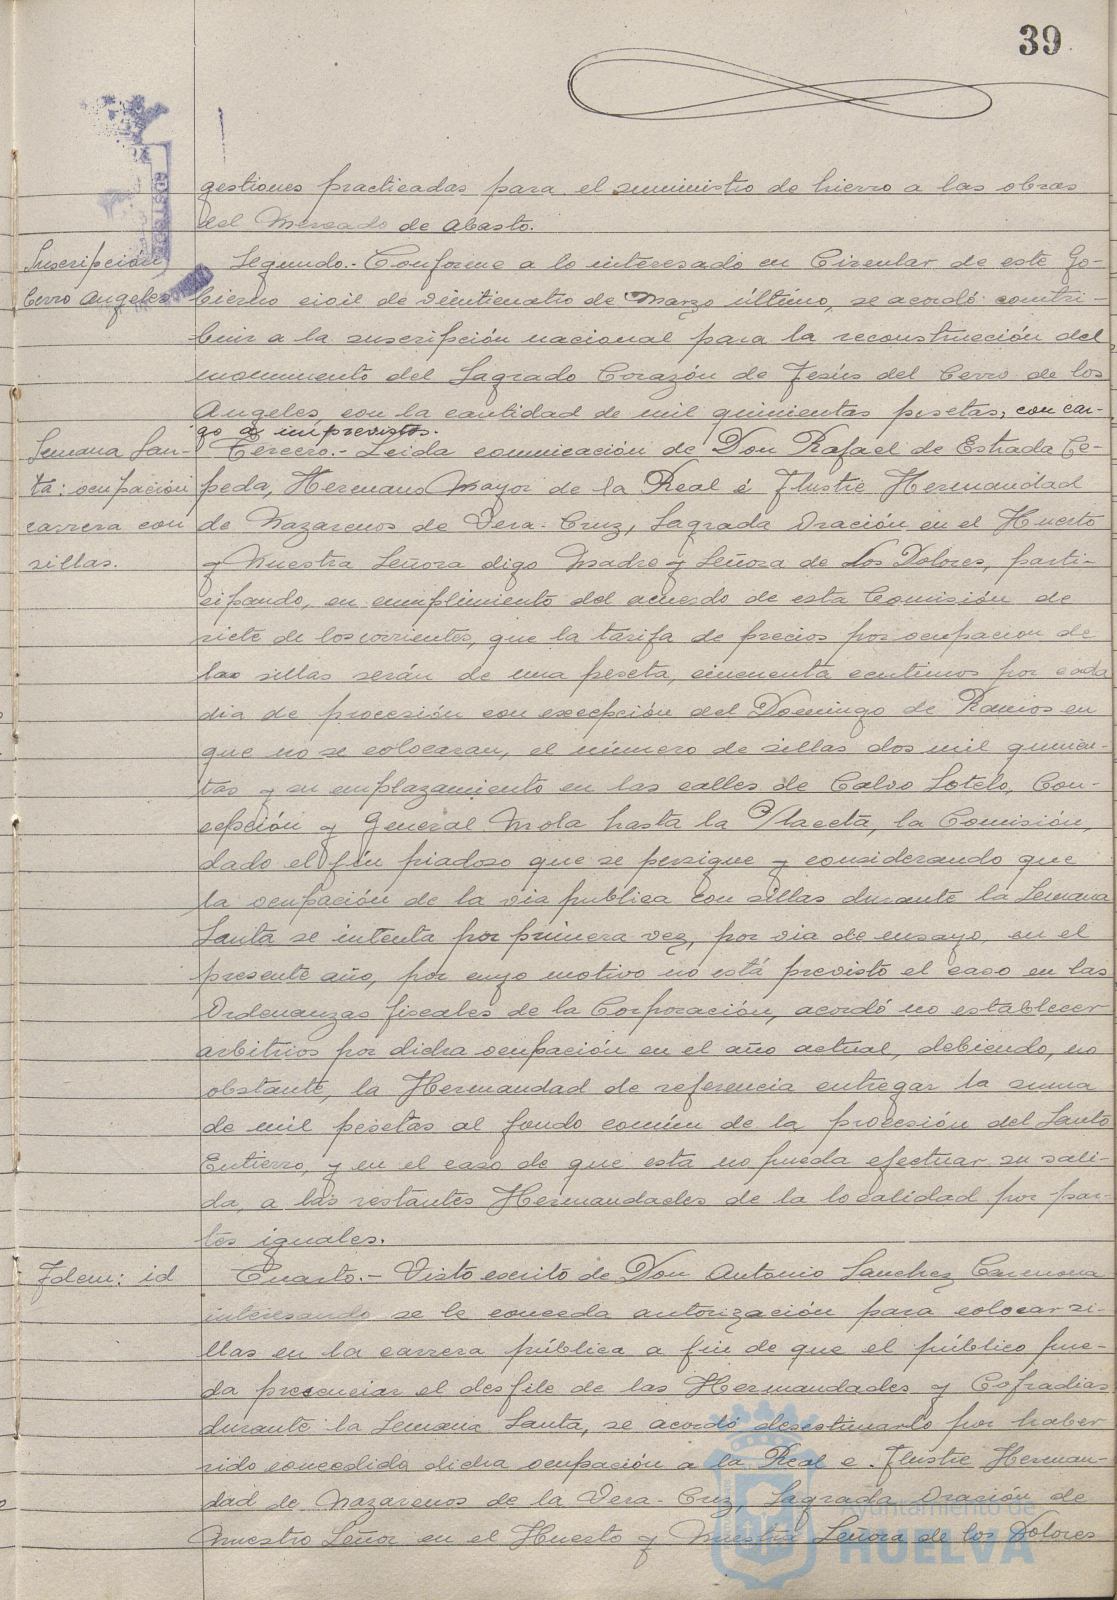 39
gestiones practicadas para el suministro de hierro a las obras
del Mercado de Abasto.
Suscripción
Cerro Angeles
Segundo.- Conforme a lo interesado en Circular de este Go-
bierno civil de veinticuatro de Marzo último, se acordó contri-
buir a la suscripción nacional para la reconstrucción del
monumento del Sagrado Corazón de Jesús del Cerro de los
Angeles, con la cantidad de mil quinientas pesetas, con car-
go a imprevistos.
Semana San-
ta: ocupación
carrera con
sillas.
Tercero.- Leida comunicación de Don Rafael de Estrada Ce-
peda, Hermano Mayor de la Real é Ilustre Hermandad
de Nazarenos de Vera-Cruz, Sagrada Oración en el Huerto
y Nuestra Señora digo Madre y Señora de los Dolores, parti-
cipando, en cumplimiento del acuerdo de esta Comisión de
siete de los corrientes, que la tarifa de precios por ocupacion de
las sillas serán de una peseta, cincuenta centimos por cada
dia de procesión con excepción del Domingo de Ramos en
que no se colocaran, el número de sillas dos mil quinien-
tas y su emplazamiento en las calles de Calvo Sotelo, Con-
cepción y General Mola hasta la Placeta, la Comisión,
dado el fin piadoso que se persigue y considerando que
la ocupación de la via publica con sillas durante la Semana
Santa se intenta por primera vez, por via de ensayo, en el
presente año, por cuyo motivo no está previsto el caso en las
Ordenanzas fiscales de la Corporación, acordó no establecer
arbitrios por dicha ocupación en el año actual, debiendo, no
obstante, la Hermandad de referencia entregar la suma
de mil pesetas al fondo común de la procesión del Santo
Entierro, y en el caso de que esta no pueda efectuar su sali-
da, a las restantes Hermandades de la localidad por par-
tes iguales.
Idem: id
Cuarto.- Visto escrito de Don Antonio Sanchez Carmona
interesando se le conceda autorización para colocar si-
llas en la carrera pública a fin de que el público pue-
da presenciar el desfile de las Hermandades y Cofradias
durante la Semana Santa, se acordó desestimarlo por haber
sido concedida dicha ocupación a la Real e Ilustre Herman-
dad de Nazarenos de la Vera-Cruz, Sagrada Oración de
Nuestro Señor en el Huerto y Nuestra Señora de los Dolores
Ayuntamiento de
HUELVA